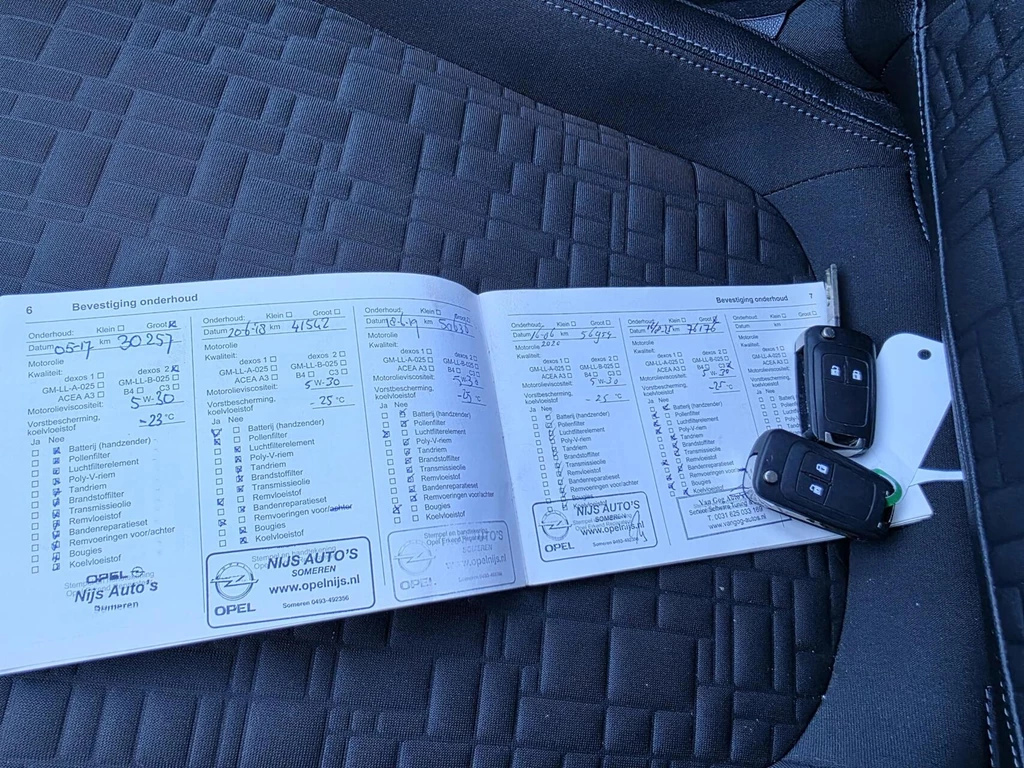 6 Bevestiging onderhoud
Onderhoud: Klein Groot
Datum 05-17 km 30257
Motorolie
Kwaliteit:
dexos 1 dexos 2
GM-LL-A-025 GM-LL-B-025
ACEA A3 B4 C3
Motorolieviscositeit:
5W-30
Vorstbescherming,
koelvloeistof -23 °C
Ja Nee
Batterij (handzender)
Pollenfilter
Luchtfilterelement
Poly-V-riem
Tandriem
Brandstoffilter
Transmissieolie
Remvloeistof
Bandenreparatieset
Remvoeringen voor/achter
Bougies
Koelvloeistof
OPEL
Nijs Auto's
Someren
Onderhoud: Klein Groot
Datum 20-6-18 km 41542
Motorolie
Kwaliteit:
dexos 1 dexos 2
GM-LL-A-025 GM-LL-B-025
ACEA A3 B4 C3
Motorolieviscositeit:
5W-30
Vorstbescherming,
koelvloeistof -25 °C
Ja Nee
Batterij (handzender)
Pollenfilter
Luchtfilterelement
Poly-V-riem
Tandriem
Brandstoffilter
Transmissieolie
Remvloeistof
Bandenreparatieset
Remvoeringen voor/achter
Bougies
Koelvloeistof
NIJS AUTO'S
SOMEREN
www.opelnijs.nl
OPEL
Someren 0493-492356
Onderhoud: Klein Groot
Datum 18-6-19 km
Motorolie
Kwaliteit:
dexos 1 dexos 2
GM-LL-A-025 GM-LL-B-025
ACEA A3 B4 C3
Motorolieviscositeit:
5W30
Vorstbescherming,
koelvloeistof -25 °C
Ja Nee
Batterij (handzender)
Pollenfilter
Luchtfilterelement
Poly-V-riem
Tandriem
Brandstoffilter
Transmissieolie
Remvloeistof
Bandenreparatieset
Remvoeringen voor/achter
Bougies
Koelvloeistof
NIJS AUTO'S
SOMEREN
www.opelnijs.nl
OPEL
Bevestiging onderhoud 7
Onderhoud: Klein Groot
Datum 16-06 km
2020
Motorolie
Kwaliteit:
dexos 1 dexos 2
GM-LL-A-025 GM-LL-B-025
ACEA A3 B4 C3
Motorolieviscositeit:
5W-30
Vorstbescherming,
koelvloeistof -25 °C
Ja Nee
Batterij (handzender)
Pollenfilter
Luchtfilterelement
Poly-V-riem
Tandriem
Brandstoffilter
Transmissieolie
Remvloeistof
Bandenreparatieset
Remvoeringen voor/achter
Bougies
NIJS AUTO'S
SOMEREN
www.opelnijs.nl
OPEL
Someren 0493-492356
Onderhoud: Klein Groot
km 76176
Motorolie
Kwaliteit:
dexos 1 dexos 2
GM-LL-A-025 GM-LL-B-025
ACEA A3 B4 C3
Motorolieviscositeit:
5W-30
Vorstbescherming,
koelvloeistof -25 °C
Ja Nee
Batterij (handzender)
Pollenfilter
Luchtfilterelement
Poly-V-riem
Tandriem
Brandstoffilter
Transmissieolie
Remvloeistof
Bandenreparatieset
Remvoeringen
Van Gog
T. 0031 625 033
www.vangog-autos.nl
Onderhoud: Klein
Datum
Motorolie
Kwaliteit:
dexos 1
GM-LL-A-025
ACEA A3
Motorolieviscositeit:
Vorstbescherming,
koelvloeistof
Ja Nee